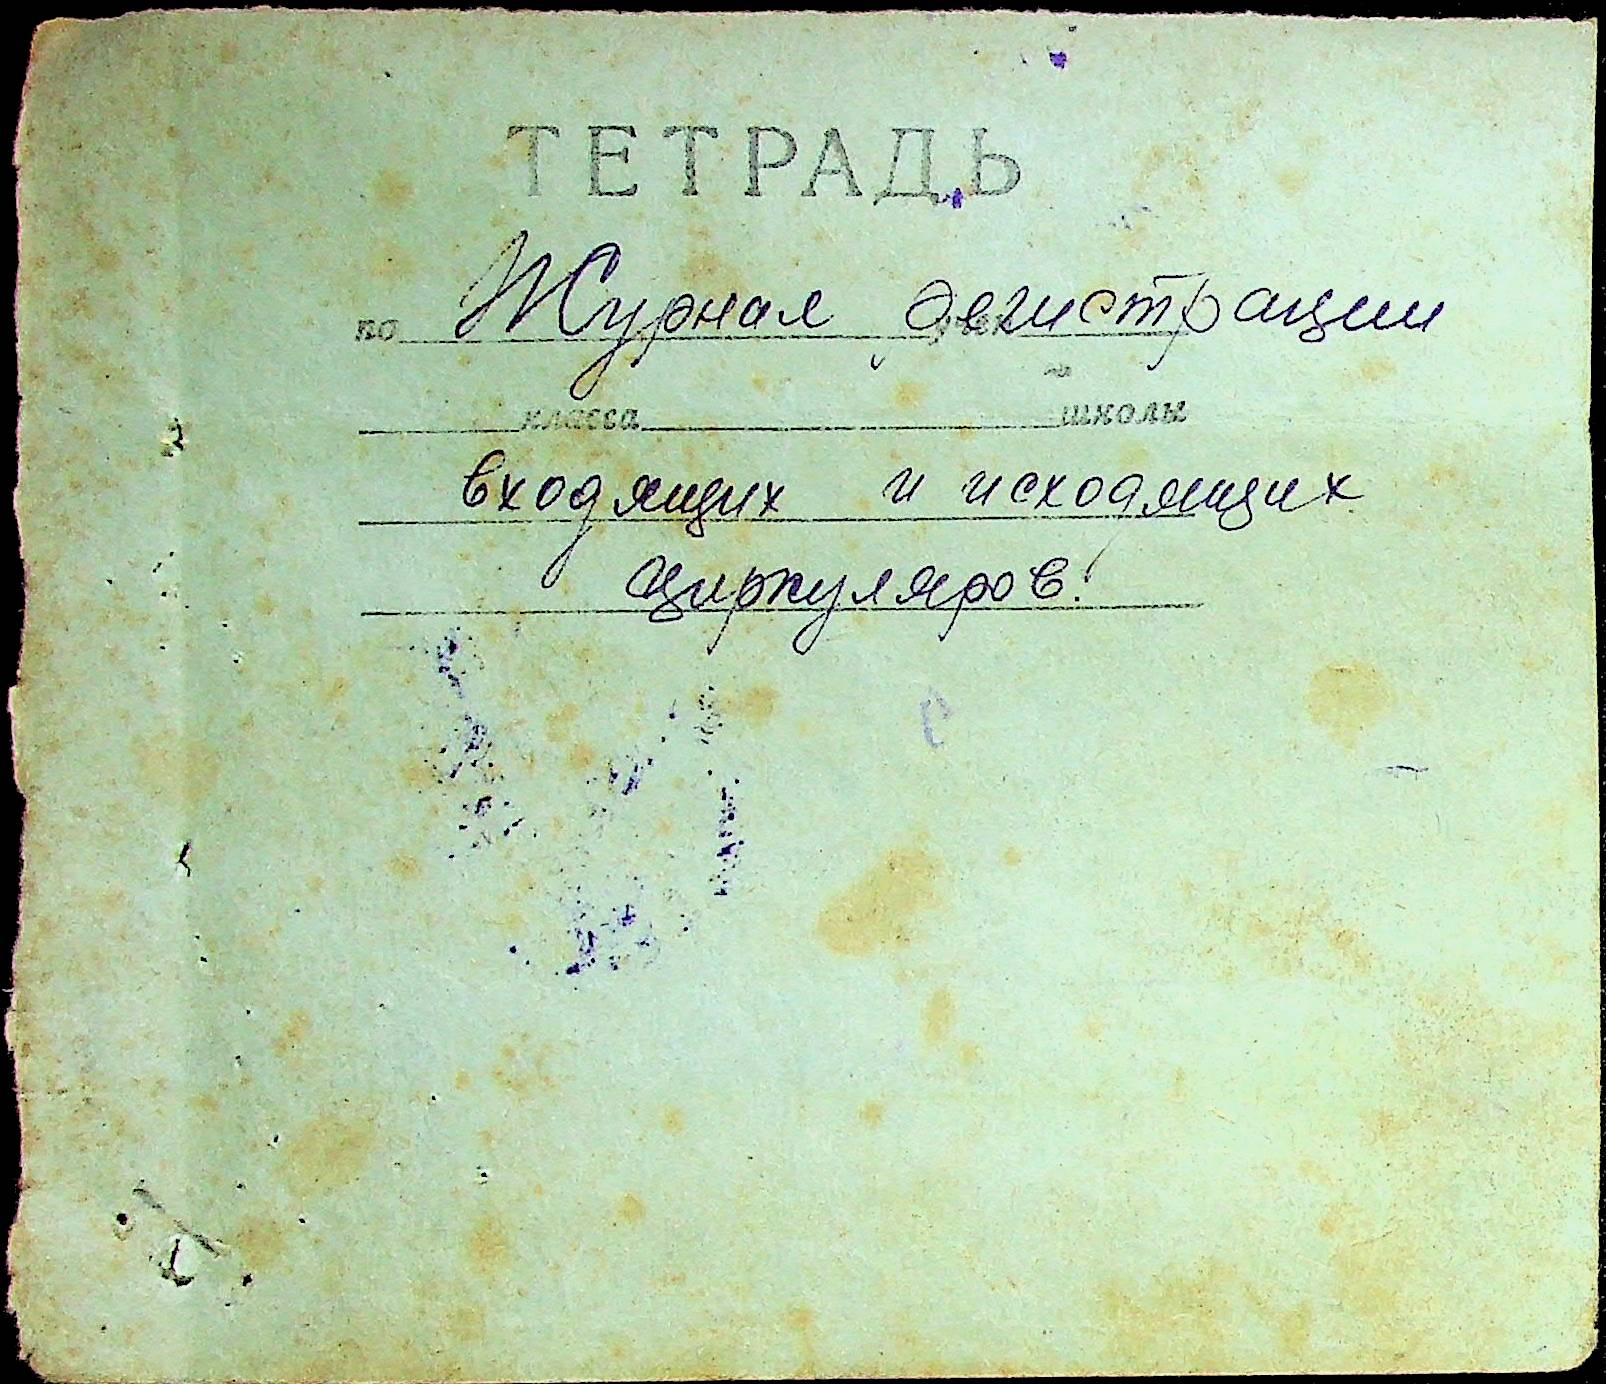 ТЕТРАДЬ
по Журнал регистрации
класса школы
входящих и исходящих
циркуляров.